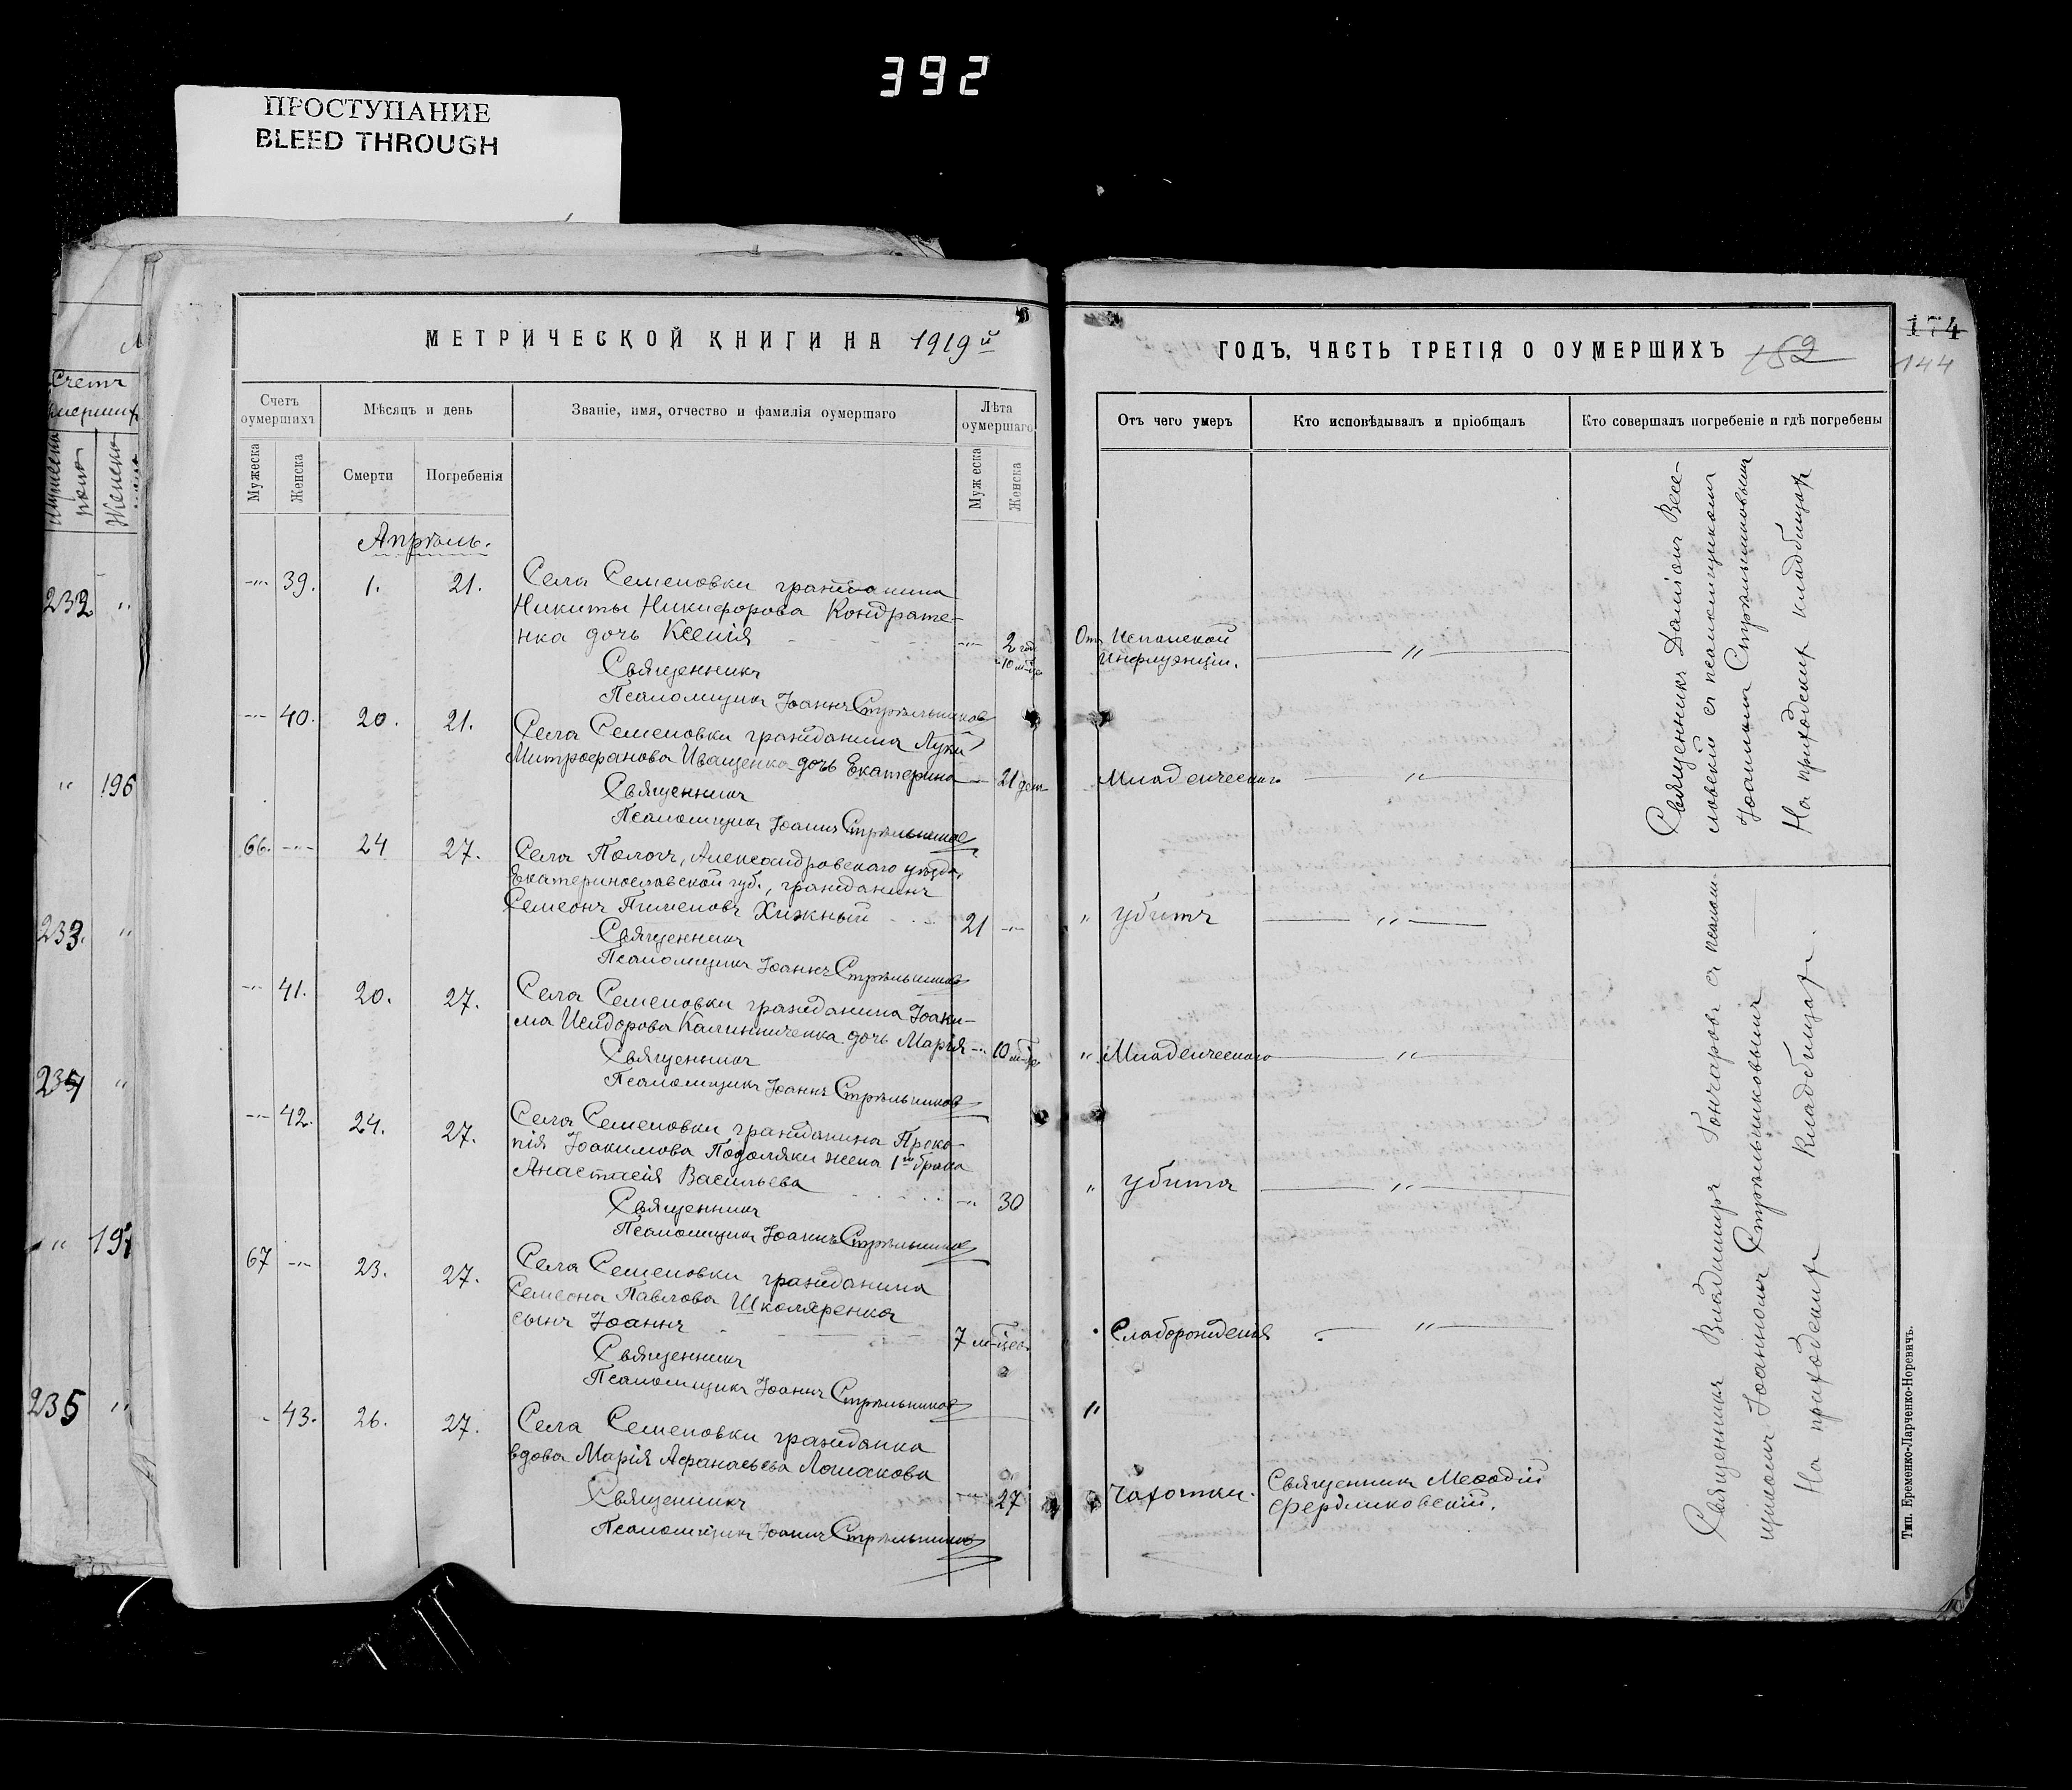 392
ПРОСТУПАНИЕ
BLEED THROUGH
МЕТРИЧЕСКОЙ КНИГИ НА 1919й
Счетъ оумершихъ
Мѣсяцъ и день
Званіе, имя, отчество и фамилія оумершаго
Лѣта оумершаго
Мужеска
Женска
Смерти
Погребенія
Муж еска
Женска
Апрѣль.
39. 1. 21. Села Семеновки гражданина
Никиты Никифорова Кондрате-
нка дочь Ксенія 2 год
10 м-ца
Священникъ
Псаломщикъ Іоаннъ Стрѣльников
40. 20. 21. Села Семеновки гражданина Луки
Митрофанова Иващенка дочь Екатерина 21 дня
Священникъ
Псаломщикъ Іоаннъ Стрѣльников
66. 24 27. Села Пологъ, Александровскаго уѣзда,
Екатеринославской губ., гражданинъ
Семеонъ Пименовъ Хижный 21
Священникъ
Псаломщикъ Іоаннъ Стрѣльников
41. 20. 27. Села Семеновки гражданина Іоаки-
ма Исидорова Калиниченка дочь Марія 10 м-цев
Священникъ
Псаломщикъ Іоаннъ Стрѣльников
42. 24. 27. Села Семеновки гражданина Проко-
пія Іоакимова Подоляки жена 1го брака
Анастасія Васильева 30
Священникъ
Псаломщикъ Іоаннъ Стрѣльников
67 23. 27. Села Семеновки гражданина
Семеона Павлова Школяренка
сынъ Іоаннъ 7 м-цев
Священникъ
Псаломщикъ Іоаннъ Стрѣльников
43. 26. 27. Села Семеновки гражданка
вдова Марія Афанасьева Ломакова
27
Священникъ
Псаломщикъ Іоаннъ Стрѣльников
Счетъ
Мужеска
Женска
232 "
" 196
233. "
234 "
" 197
235 "
ГОДЪ, ЧАСТЬ ТРЕТІЯ О ОУМЕРШИХЪ 152
174
144
Отъ чего умеръ
Кто исповѣдывалъ и пріобщалъ
Кто совершалъ погребеніе и гдѣ погребены
Отъ Испанской
Инфлуэнціи. "
Младенческаго "
" убитъ "
" Младенческаго "
" убита "
Слаборожденія "
"
Чахотки. Священникъ Мефодій
Священникъ Даніилъ Весе-
ловскій съ псаломщикомъ
Іоанномъ Стрѣльниковымъ
На приходскихъ кладбищахъ
Священникъ Владимиръ Гончаровъ съ псалом-
щикомъ Іоанномъ Стрѣльниковымъ
На приходскихъ кладбищахъ.
Тип. Еременко-Ларченко-Норевичъ.